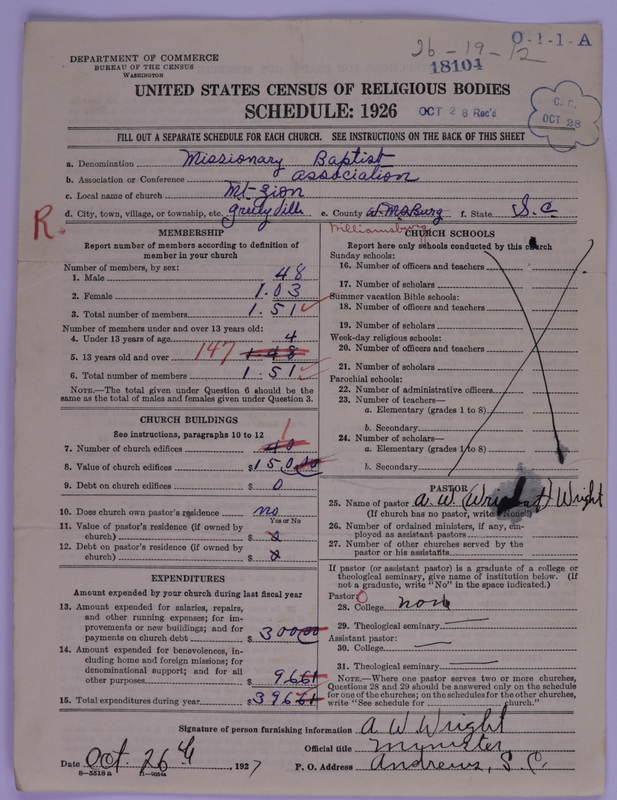 26-19-12
O-1-1-A
18104
DEPARTMENT OF COMMERCE
BUREAU OF THE CENSUS
WASHINGTON
UNITED STATES CENSUS OF RELIGIOUS BODIES
SCHEDULE: 1926
OCT 28 Rec'd
C. C.
OCT 28
FILL OUT A SEPARATE SCHEDULE FOR EACH CHURCH. SEE INSTRUCTIONS ON THE BACK OF THIS SHEET
a. Denomination Missionary Baptist
b. Association or Conference association
c. Local name of church Mt-Zion
d. City, town, village, or township, etc. e. County f. State S.C
R.
Williamsburg
MEMBERSHIP
Report number of members according to definition of
member in your church
Number of members, by sex:
1. Male 48
2. Female 1.03
3. Total number of members 1.51
Number of members under and over 13 years old:
4. Under 13 years of age 4
5. 13 years old and over 147 148
6. Total number of members 1.51
NOTE.—The total given under Question 6 should be the
same as the total of males and females given under Question 3.
CHURCH BUILDINGS
See instructions, paragraphs 10 to 12
7. Number of church edifices 1
8. Value of church edifices $1500.00
9. Debt on church edifices $0
10. Does church own pastor's residence? no
Yes or No
11. Value of pastor's residence (if owned by
church) $
12. Debt on pastor's residence (if owned by
church) $
EXPENDITURES
Amount expended by your church during last fiscal year
13. Amount expended for salaries, repairs,
and other running expenses; for im-
provements or new buildings; and for
payments on church debt $300.00
14. Amount expended for benevolences, in-
cluding home and foreign missions; for
denominational support; and for all
other purposes 96.61
15. Total expenditures during year $396.61
CHURCH SCHOOLS
Report here only schools conducted by this church
Sunday schools:
16. Number of officers and teachers
17. Number of scholars
Summer vacation Bible schools:
18. Number of officers and teachers
19. Number of scholars
Week-day religious schools:
20. Number of officers and teachers
21. Number of scholars
Parochial schools:
22. Number of administrative officers
23. Number of teachers—
a. Elementary (grades 1 to 8)
b. Secondary
24. Number of scholars—
a. Elementary (grades 1 to 8)
b. Secondary
PASTOR
25. Name of pastor A. W. Wright
(If church has no pastor, write "None")
26. Number of ordained ministers, if any, em-
ployed as assistant pastors
27. Number of other churches served by the
pastor or his assistants
If pastor (or assistant pastor) is a graduate of a college or
theological seminary, give name of institution below. (If
not a graduate, write "No" in the space indicated.)
Pastor: 0
28. College none
29. Theological seminary
Assistant pastor:
30. College
31. Theological seminary
NOTE.—Where one pastor serves two or more churches,
Questions 28 and 29 should be answered only on the schedule
for one of the churches; on the schedules for the other churches,
write "See schedule for church."
Signature of person furnishing information A W. Wright
Official title Mynister
Date Oct. 26th, 1927 P. O. Address Andrews, S.C.
8-5518 a